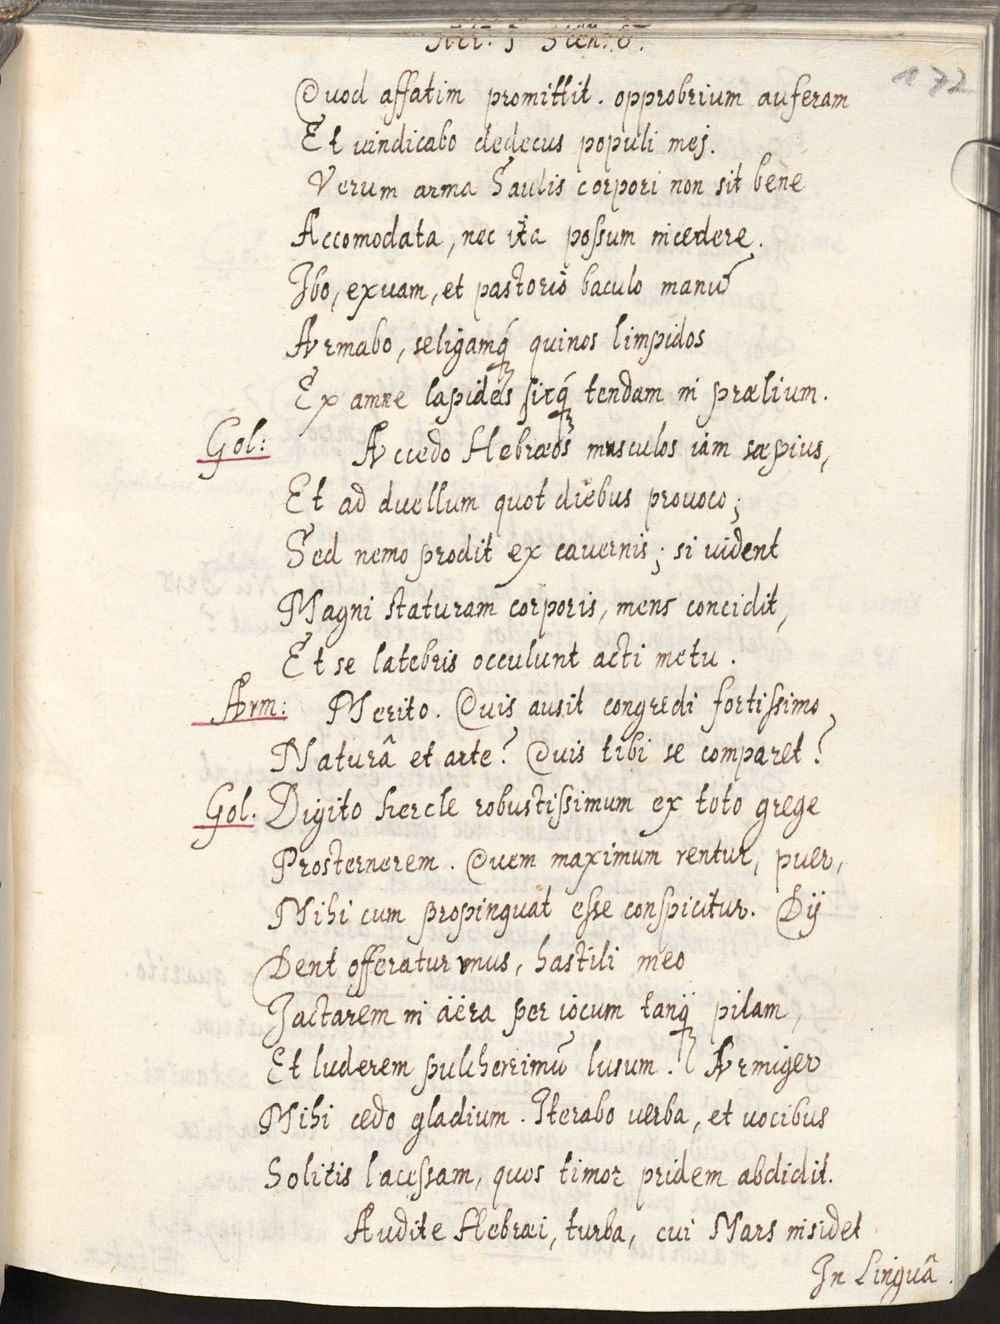 Act: 5 Scen: 6.
172
Quod affatim promittit. opprobrium auferam
Et vindicabo dedecus populi mej.
Verum arma Saulis corpori non sit bene
Accomodata, nec ita possum incedere.
Ibo, exuam, et pastorio baculo manū
Armabo, seligamq́ quinos limpidos
Ex amne lapides sicq́ tendam in prælium.
Gol: Accedo Hebræos musculos iam sæpius,
Et ad duellum quot diebus prouoco;
Sed nemo prodit ex cauernis; si uident
Magni staturam corporis, mens concidit,
Et se latebris occulunt acti metu.
Arm: Merito. Quis ausit congredi fortissimo
Naturâ et arte? Quis tibi se comparet?
Gol. Digito hercle robustissimum ex toto grege
Prosternerem. Quem maximum rentur, puer,
Mihi cum propinquat esse conspicitur. Dij
Dent offeratur vnus, hastili meo
Jactarem in äëra per iocum tanq́ pilam,
Et luderem pulcherrimū lusum. Armiger
Mihi cedo gladium. Iterabo uerba, et uocibus
Solitis lacessam, quos timor pridem abdidit.
Audite Hebræi, turba, cui Mars insidet
In Linguâ.